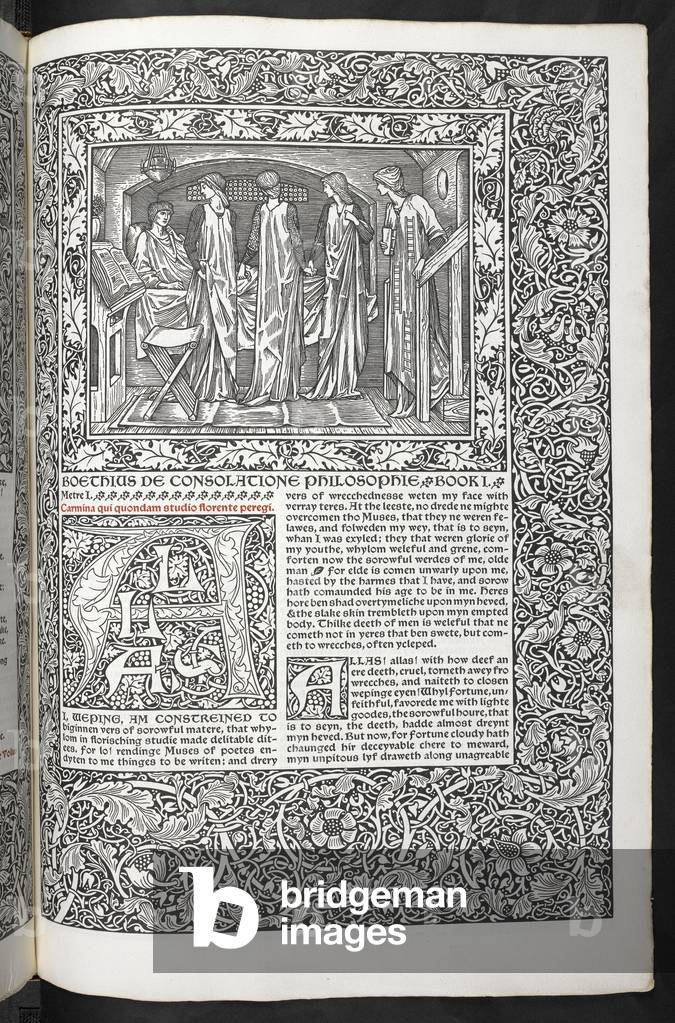 BOETHIUS DE CONSOLATIONE PHILOSOPHIE BOOK I.
Metre I.
Carmina qui quondam studio florente peregi.
ALLAS
I, WEPING, AM CONSTREINED TO
biginnen vers of sorowful matere, that why-
lom in florisching studie made delitable dit-
ees. For lo! rendinge Muses of poetes en-
dyten to me thinges to be writen; and drery
vers of wrecchednesse weten my face with
verray teres. At the leeste, no drede ne mighte
overcomen tho Muses, that they ne weren fe-
lawes, and folweden my wey, that is to seyn,
whan I was exyled; they that weren glorie of
my youthe, whylom weleful and grene, com-
forten now the sorowful werdes of me, olde
man. For elde is comen unwarly upon me,
hasted by the harmes that I have, and sorow
hath comaunded his age to be in me. Heres
hore ben shad overtymeliche upon myn heved,
& the slake skin trembleth upon myn empted
body. Thilke deeth of men is weleful that ne
cometh not in yeres that ben swete, but com-
eth to wrecches, often ycleped.
ALLAS! allas! with how deef an
ere deeth, cruel, torneth awey fro
wrecches, and naiteth to closen
wepinge eyen! Whyl Fortune, un-
feithful, favorede me with lighte
goodes, the sorowful houre, that
is to seyn, the deeth, hadde almost dreynt
myn heved. But now, for Fortune cloudy hath
chaunged hir deceyvable chere to meward,
myn unpitous lyf draweth along unagreable
b bridgeman
images